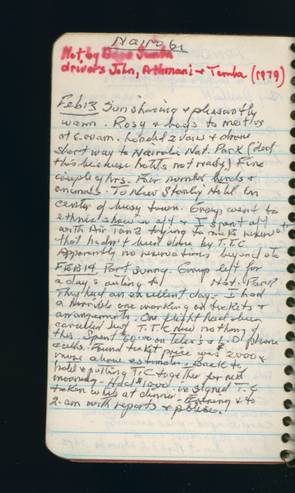 Nairobi
Met by Dave Tomba
drivers John, Athmani + Temba (1979)
Feb 13 Sun shining + pleasantly
warm. Rosy + bags to meet us
at 6.00am. Loaded 2 vans + drove
short way to Nairobi Nat. Park (did
this because hotel not ready) Fine
couple of hrs. Fair number herds +
animals. To New Stanley Hotel in
center of busy town. Group went to
ethnic show in aft + I spent aft
with Air Tanz trying to make reservations
that hadn't been done by T.T.C
Apparently no reservations beyond
FEB 14 Part Sunny. Group left for
a day's outing to Nat. Park
They had an excellent day. I had
a horrible one working on tickets +
arrangements. One flight had been
cancelled but T.T.C knew nothing of
this. Spent on telex + L.D phone
calls. Found ticket price was 2000 +
more above estimate. Back to
hotel + putting T.C together for next
morning. Had signed T.C
taken at dinner. to
2.am with reports +